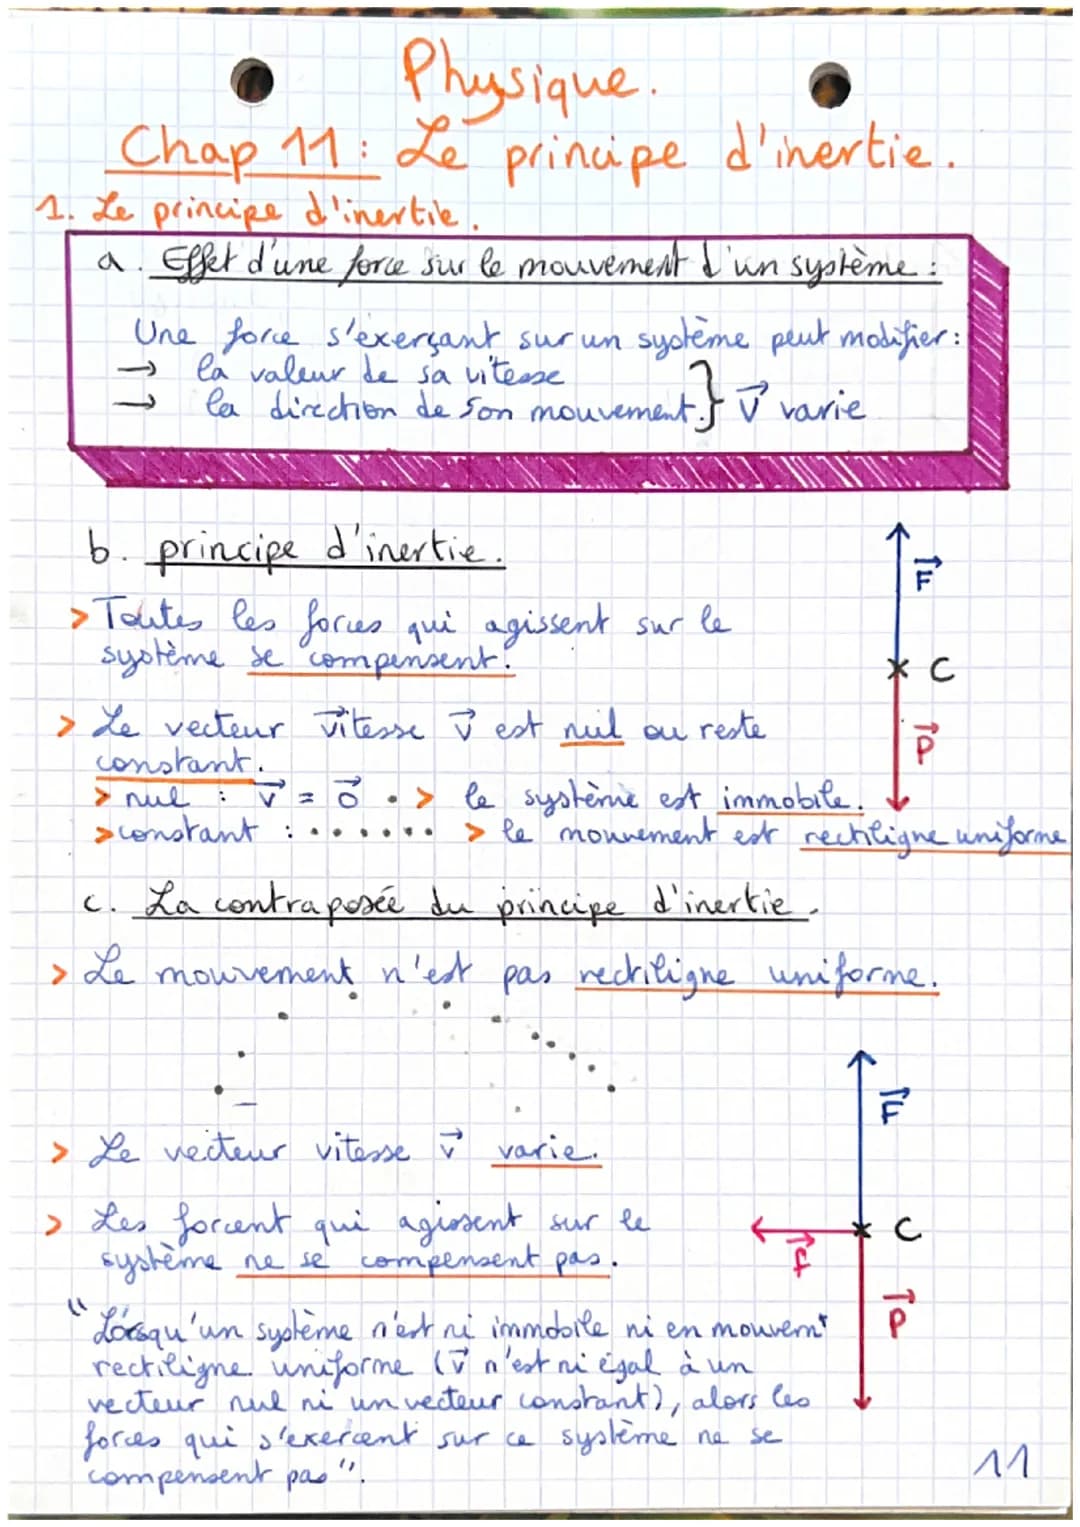 Physique.
Chap 11 : Le principe d'inertie.
1. Le principe d'inertie.
a. Effet d'une force sur le mouvement d'un système :
Une force s'éxerçant sur un système peut modifier :
→ la valeur de sa vitesse
→ la direction de son mouvement. } V⃗ varie
b. principe d'inertie.
F⃗
> Toutes les forces qui agissent sur le
système se compensent.
C
> Le vecteur vitesse v⃗ est nul ou reste
constant.
P⃗
> nul : v⃗ = 0⃗ . > le système est immobile.
> constant : . . . . . . > le mouvement est rectiligne uniforme
c. La contraposée du principe d'inertie.
> Le mouvement n'est pas rectiligne uniforme.
F⃗
> Le vecteur vitesse v⃗ varie.
> Les forcent qui agissent sur le
système ne se compensent pas.
C
f⃗
P⃗
"Lorsqu'un système n'est ni immobile ni en mouvemt
rectiligne uniforme (v⃗ n'est ni égal à un
vecteur nul ni un vecteur constant), alors les
forces qui s'exercent sur ce système ne se
compensent pas".
11